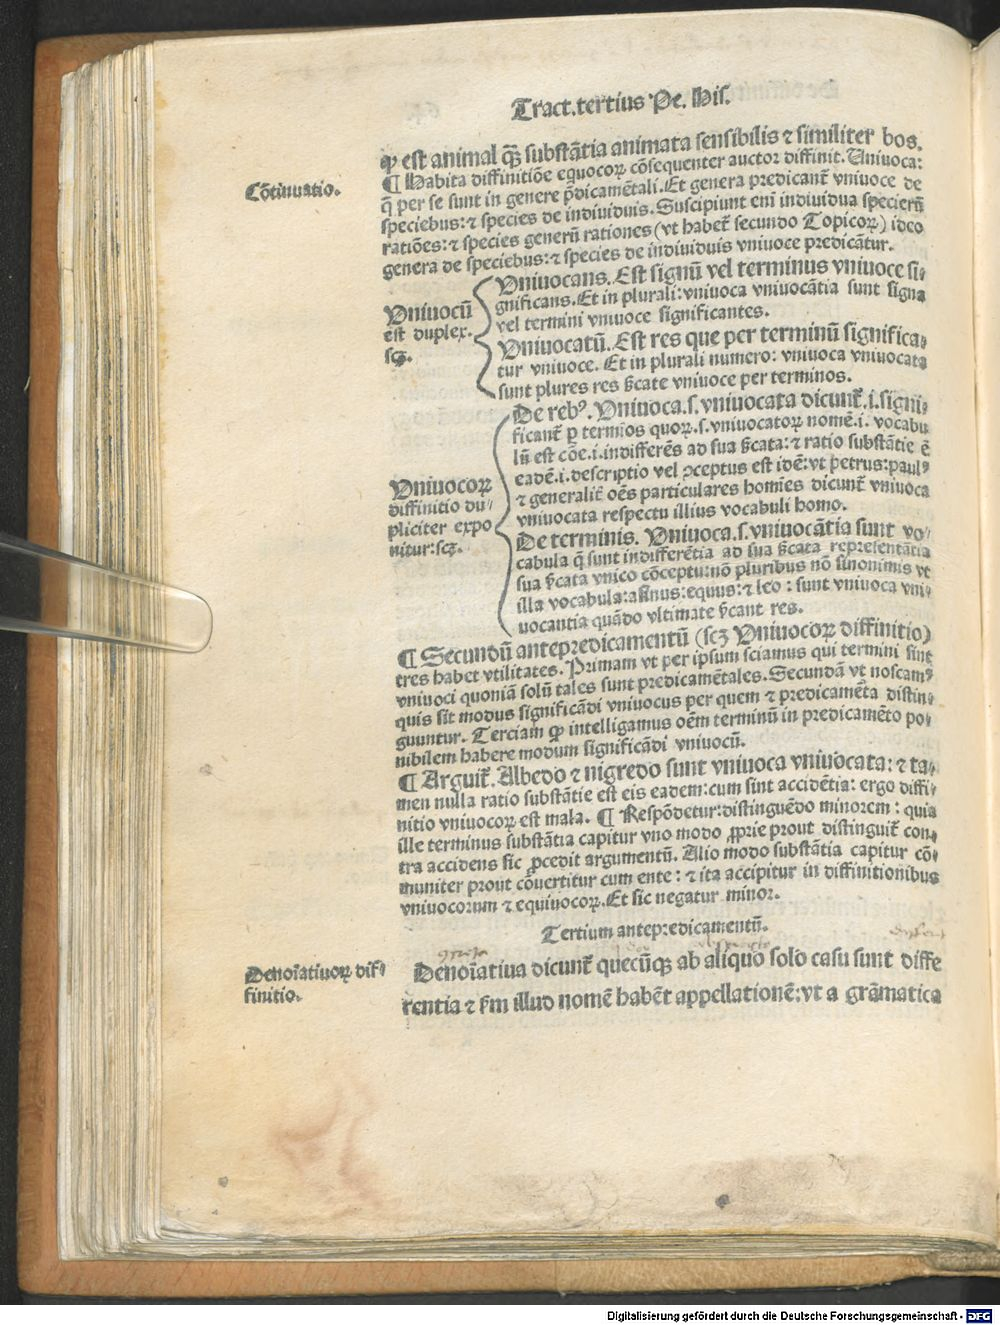 Tract.tertius Pe. His.
ꝙ est animal q̃ꝫ substãtia animata sensibilis ⁊ similiter bos.
Cõtinuatio.
¶ Habita diffinitiõe equocoꝝ cõsequenter auctor diffinit. Uniuoca:
q̃ per se sunt in genere p̃dicamẽtali. Et genera predicant̃ vniuoce de
speciebus: ⁊ species de indiuiduis. Suscipiunt enĩ indiuidua specierũ
ratiões: ⁊ species generũ rationes (vt habet̃ secundo Topicoꝝ) ideo
genera de speciebus: ⁊ species de indiuiduis vniuoce predicãtur.
Uniuocũ
est duplex.
scꝫ.
Uniuocans. Est signũ vel terminus vniuoce si⸗
gnificans. Et in plurali: vniuoca vniuocãtia sunt signa
vel termini vniuoce significantes.
Uniuocatũ. Est res que per terminũ significa⸗
tur vniuoce. Et in plurali numero: vniuoca vniuocata
sunt plures res s̃cate vniuoce per terminos.
Uniuocoꝝ
diffinitio du⸗
pliciter expo
nitur: scꝫ.
De rebꝰ. Uniuoca.s. vniuocata dicunt̃.i. signi⸗
ficant̃ ꝑ termios quoꝝ.s. vniuocatoꝝ nomẽ.i. vocabu
lũ est cõe.i. indifferẽs ad sua s̃cata: ⁊ ratio substãtie ẽ
eadẽ.i. descriptio vel ↄceptus est idẽ: vt petrus: paulꝰ
⁊ generalit̃ oẽs particulares homĩes dicunt̃ vniuoca
vniuocata respectu illius vocabuli homo.
De terminis. Uniuoca.s. vniuocãtia sunt vo⸗
cabula q̃ sunt indifferẽtia ad sua s̃cata representãtia
sua s̃cata vnico cõceptu: nõ pluribus nõ sinonimis vt
illa vocabula: asinus: equus: ⁊ leo: sunt vniuoca vni⸗
uocantia quãdo vltimate s̃cant res.
¶ Secundũ antepredicamentũ (scꝫ Uniuocoꝝ diffinitio)
tres habet vtilitates. Primam vt per ipsum sciamus qui termini sint
vniuoci quoniã solũ tales sunt predicamẽtales. Secundã vt noscamꝰ
quis sit modus significãdi vniuocus per quem ⁊ predicamẽta distin⸗
guuntur. Terciam ꝙ intelligamus oẽm terminũ in predicamẽto po⸗
nibilem habere modum significãdi vniuocũ.
¶ Arguit̃. Albedo ⁊ nigredo sunt vniuoca vniuocata: ⁊ ta⸗
men nulla ratio substãtie est eis eadem: cum sint accidẽtia: ergo diffi⸗
nitio vniuocoꝝ est mala. ¶ Respõdetur: distinguẽdo minorem: quia
ille terminus substãtia capitur vno modo ꝓprie prout distinguit̃ con⸗
tra accidens sic ꝓcedit argumentũ. Alio modo substãtia capitur cõ⸗
muniter prout cõuertitur cum ente: ⁊ ita accipitur in diffinitionibus
vniuocorum ⁊ equiuocoꝝ. Et sic negatur minor.
Tertium antepredicamentũ.
Denoĩatiuoꝝ dif⸗
finitio.
Denoĩatiua dicunt̃ quecũqꝫ ab aliquo solo casu sunt diffe
rentia ⁊ s̃m illud nomẽ habẽt appellationẽ: vt a grãmatica
Digitalisierung gefördert durch die Deutsche Forschungsgemeinschaft - DFG